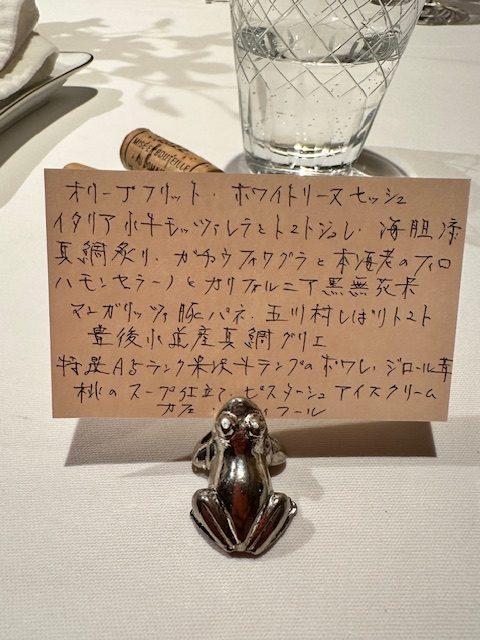 MIS EN BOUTEILLE
オリーブフリット ホワイトリーヌセッシュ
イタリア水牛モッツァレラとトマトジュレ 海胆添
真鯛炙り ガチョウフォワグラと本海老のフィロ
ハモンセラーノとカリフォルニア黒無花果
マンガリッツァ豚パネ 五川村しばりトマト
豊後水道産真鯛グリエ
特選A5ランク米沢牛ランプのポワレ ジロール茸
桃のスープ仕立て ピスターシュアイスクリーム
カフェ フール